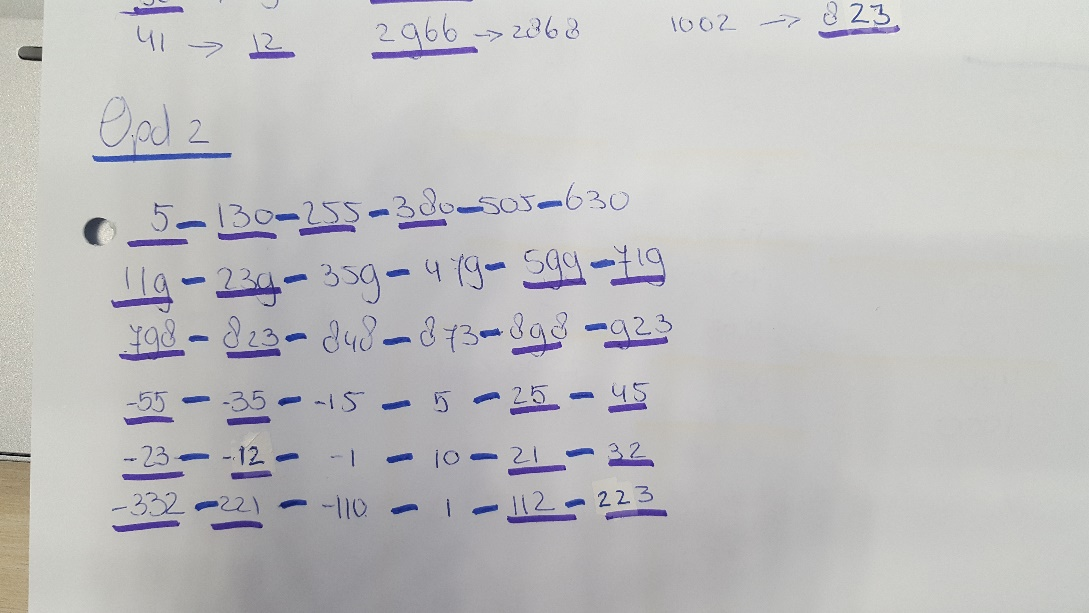 41 → 12 2966 → 2868 1002 → 823
Opd 2
5 - 130 - 255 - 380 - 505 - 630
119 - 239 - 359 - 479 - 599 - 719
798 - 823 - 848 - 873 - 898 - 923
-55 - -35 - -15 - 5 - 25 - 45
-23 - -12 - -1 - 10 - 21 - 32
-332 - 221 - -110 - 1 - 112 - 223